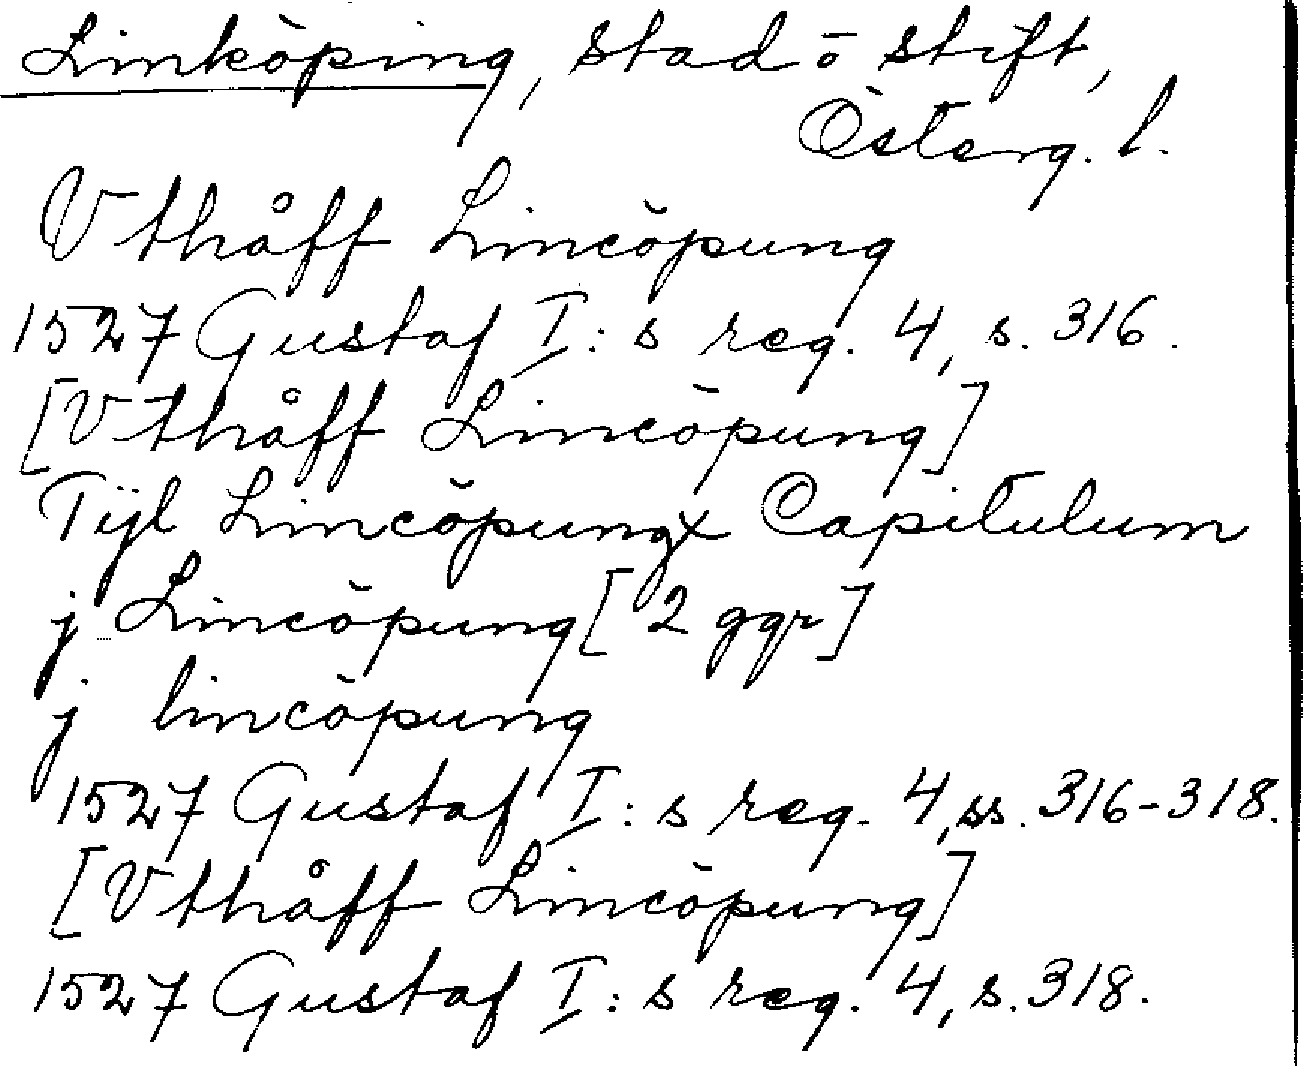 Linköping, stad ō stift,
Österg. l.
Vthåff Lincöpung
1527 Gustaf I:s reg. 4, s. 316.
[Vthåff Lincöpung]
Tijl Lincöpungx Capitulum
j Lincöpung [2 ggr]
j lincöpung
1527 Gustaf I:s reg. 4, ss. 316-318.
[Vthåff Lincöpung]
1527 Gustaf I:s reg. 4, s. 318.